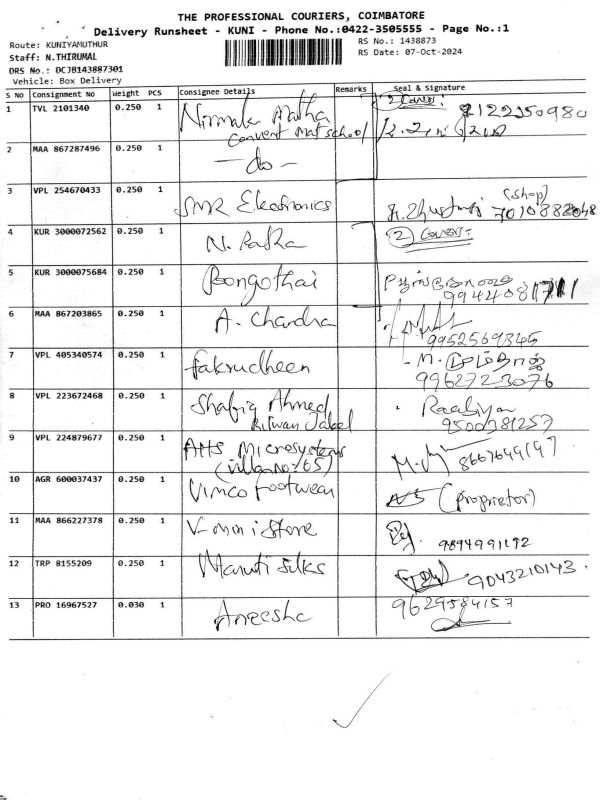 THE PROFESSIONAL COURIERS, COIMBATORE
Delivery Runsheet - KUNI - Phone No.:0422-3505555 - Page No.:1
Route: KUNIYAMUTHUR
RS No.: 1438873
Staff: N.THIRUMAL
RS Date: 07-Oct-2024
DRS No.: DCJB143887301
Vehicle: Box Delivery
S No Consignment No Weight PCS Consignee Details Remarks Seal & Signature
1 TVL 2101340 0.250 1 Nirmala Matha
Convent Mat school
2 cover
2 MAA 867287496 0.250 1 - do -
3 VPL 254670433 0.250 1 SMR Electronics (shop)
4 KUR 3000072562 0.250 1 N. Radha 2 cover
5 KUR 3000075684 0.250 1 Poongothai
6 MAA 867203865 0.250 1 A. Chandra
9952569345
7 VPL 405340574 0.250 1 fakrudheen M. மும்தாஜ்
9962723076
8 VPL 223672468 0.250 1 Shafiq Ahmed
Riswan Jaleel
9500381257
9 VPL 224879677 0.250 1 AHS Microsystems
(villa no: 65)
8667649197
10 AGR 600037437 0.250 1 Vimco Footwear (proprietor)
11 MAA 866227378 0.250 1 V-mini store
9894991192
12 TRP 8155209 0.250 1 Maruti Silks 9043210143
13 PRO 16967527 0.030 1 Aneesha 9629584157